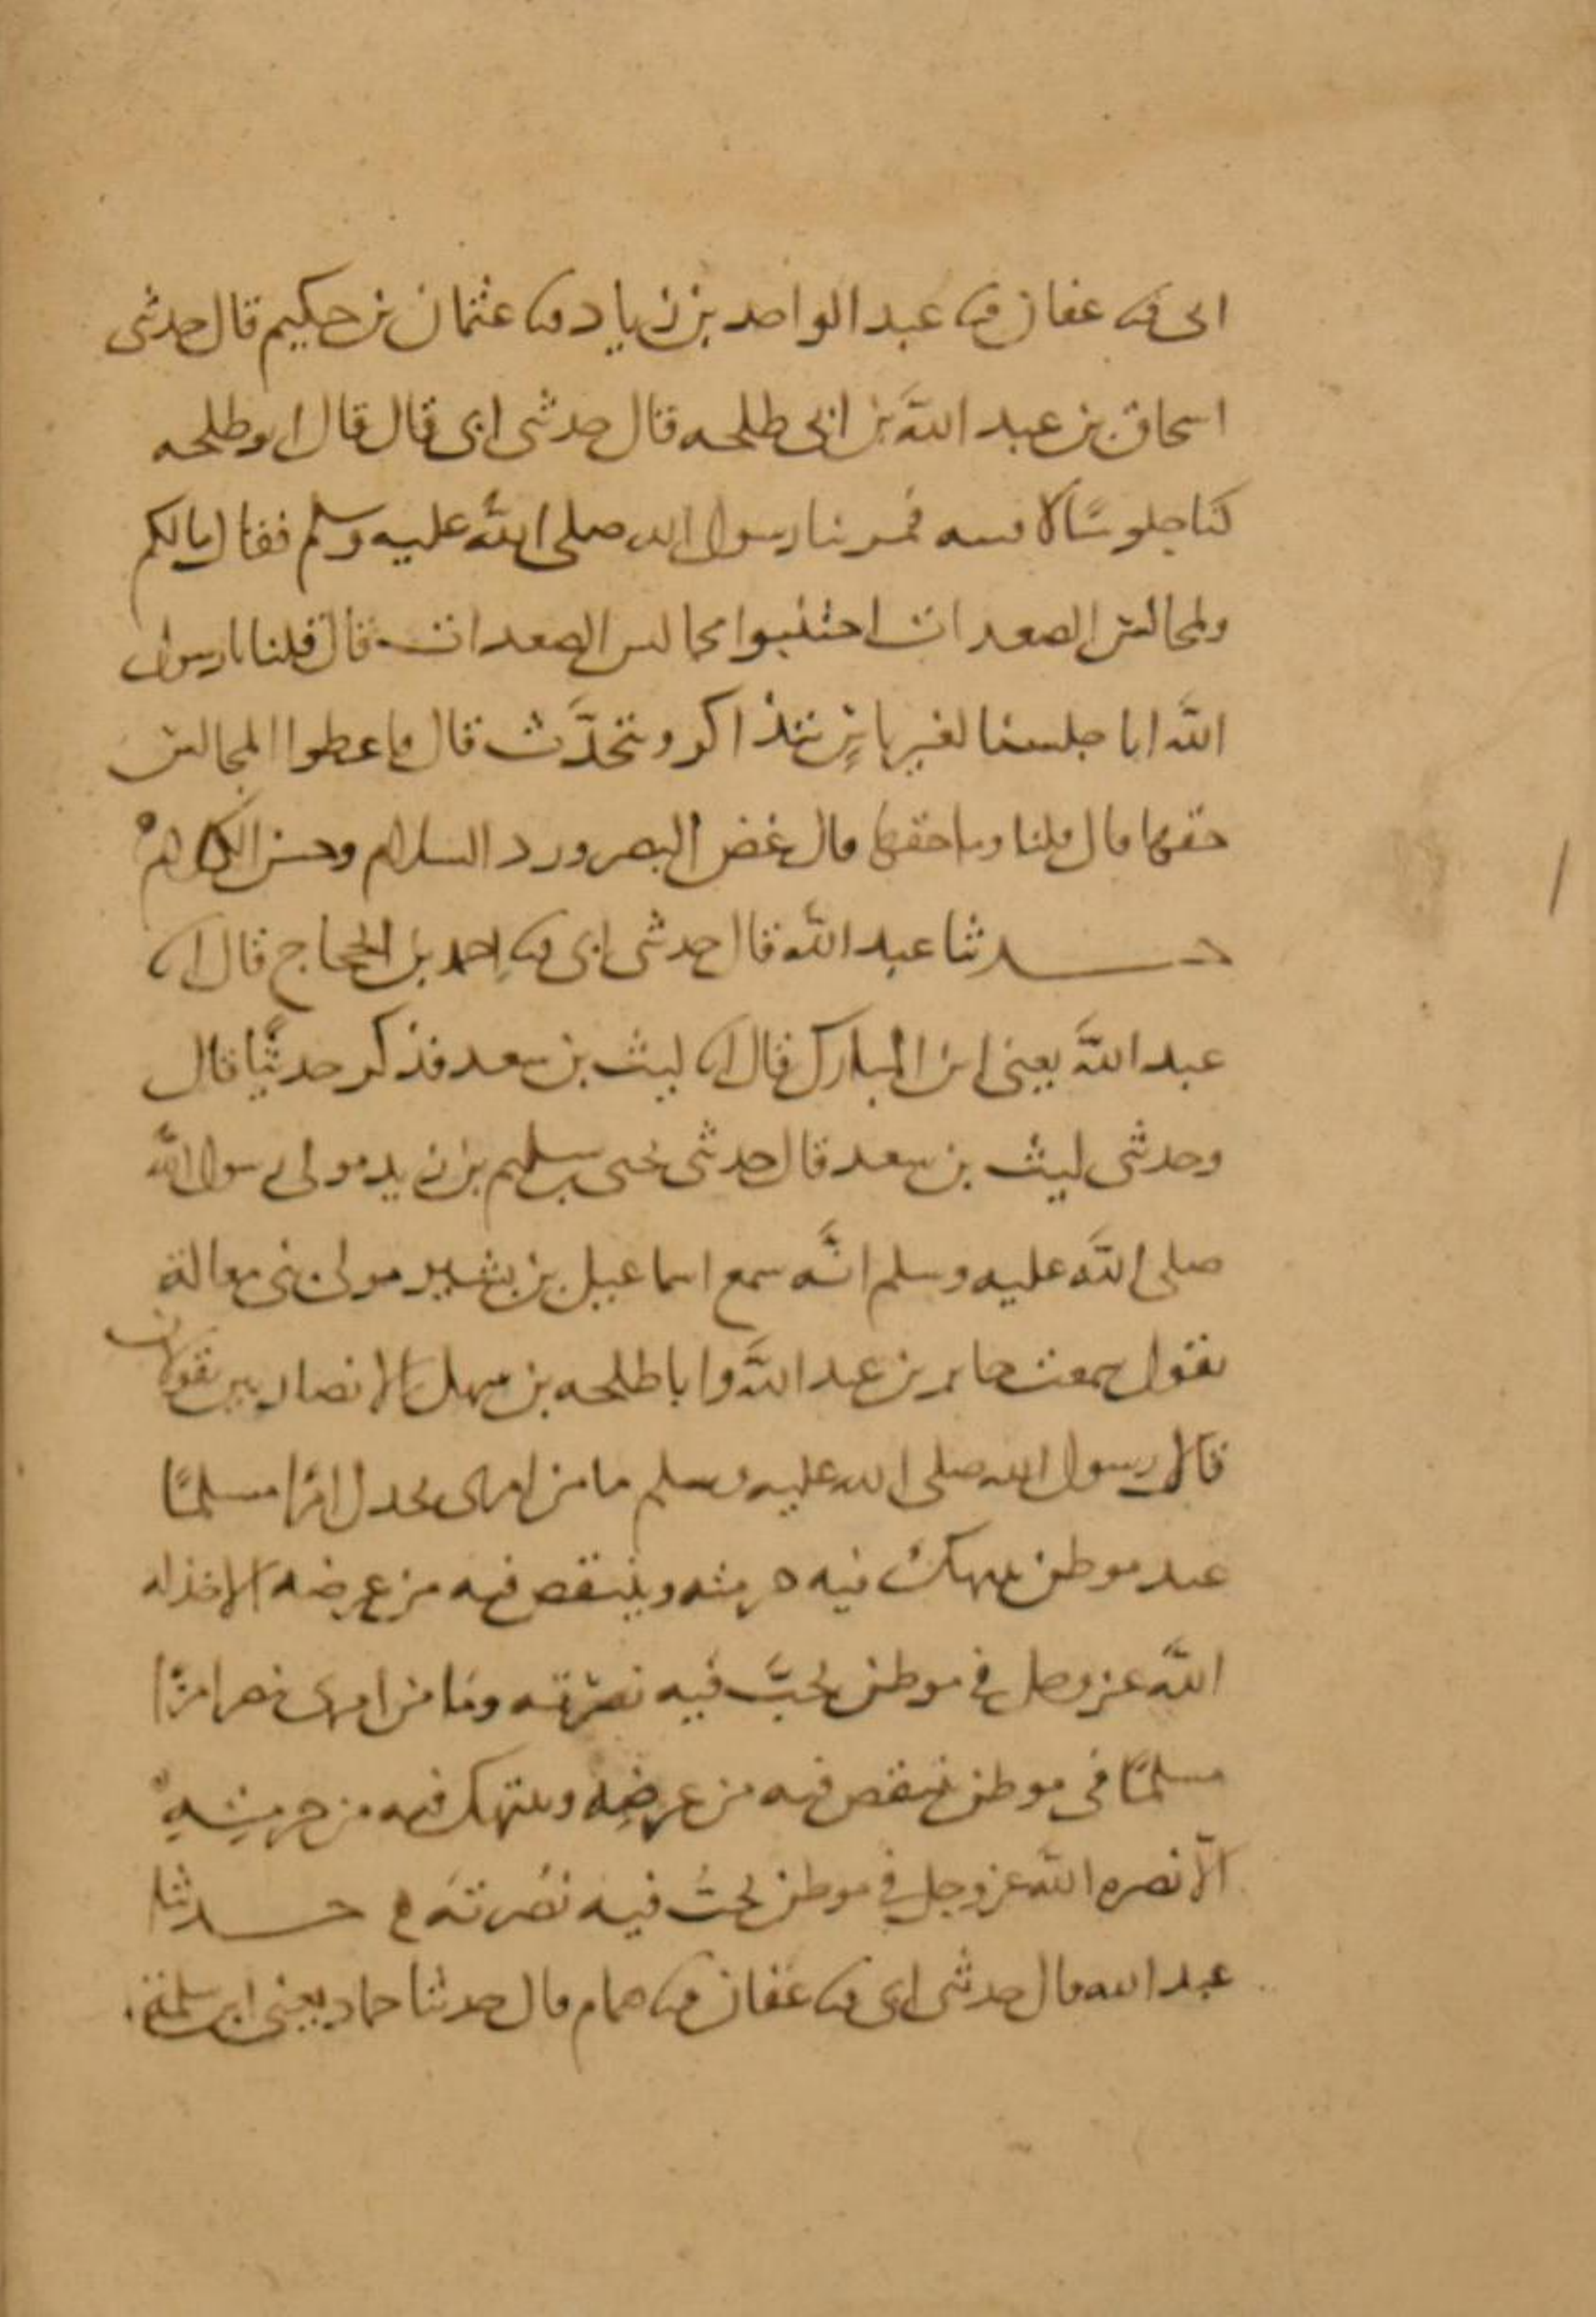 ابى ثنا عفان ثنا عبد الواحد بن زياد ثنا عثمان بن حكيم قال حدثنى
اسحاق بن عبد الله بن ابى طلحه قال حدثنى ابى قال قال ابو طلحه
كنا جلوسًا بالافنيه فمر بنا رسول الله صلى الله عليه وسلم فقال ما لكم
ولمجالس الصعدات اجتنبوا مجالس الصعدات قال قلنا يا رسول
الله انا جلسنا لغير باسٍ نتذاكر ونتحدَّث قال فاعطوا المجالس
حقها قال قلنا وما حقها قال غض البصر ورد السلام وحسن الكلام
حدثنا عبد الله قال حدثنى ابى ثنا احمد بن الحجاج قال انا
عبد الله يعنى ابن المبارك قال انا ليث بن سعد فذكر حديثًا قال
وحدثنى ليث بن سعد قال حدثنى يحيى بن سليم بن زيد مولى رسول الله
صلى الله عليه وسلم انَّه سمع اسماعيل بن بشير مولى بنى مغالة
يقول سمعت جابر بن عبد الله وابا طلحه بن سهل الانصاريين يقولان
قال رسول الله صلى الله عليه وسلم ما من امرئ يخذل امرًا مسلمًا
عند موطن ينتهك فيه حرمته وينتقص فيه من عرضه الا خذله
الله عز وجل فى موطن يحبّ فيه نصرته وما من امرئ ينصر امرًا
مسلمًا فى موطن ينتقص فيه من عرضه وينتهك فيه من حرمته
الّا نصره الله عز وجل فى موطن يحبُّ فيه نصرته حدثنا
عبد الله قال حدثنى ابى ثنا عفان ثنا همام قال حدثنا حماد يعنى ابن سلمة